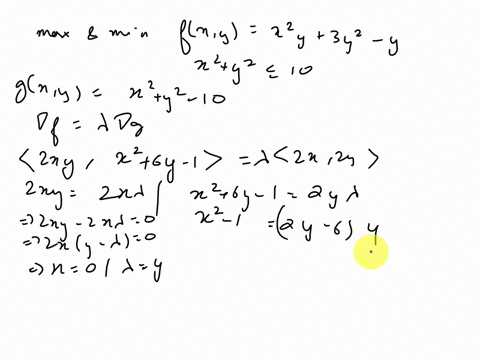 max & min f(x,y) = x²y + 3y² - y
x²+y² ≤ 10
g(x,y) = x²+y²-10
∇f = λ∇g
<2xy, x²+6y-1> = λ<2x, 2y>
2xy = 2xλ | x²+6y-1 = 2yλ
⇒ 2xy - 2xλ = 0 x²-1 = (2y-6) y
⇒ 2x(y-λ) = 0
⇒ x = 0 / λ = y